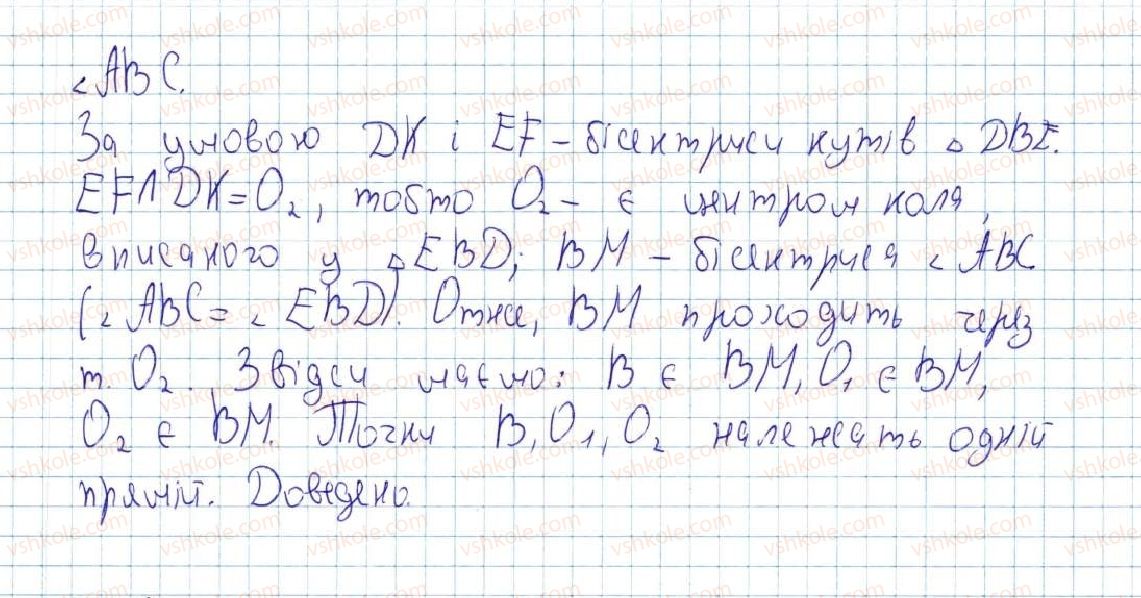 ∠ABC.
За умовою DK і EF - бісектриси кутів △ DBE.
EF∩DK=O₂, тобто O₂ - є центром кола,
вписаного у △EBD; BM - бісектриса ∠ABC
(∠ABC=∠EBD). Отже, BM проходить через
т. O₂. Звідси маємо: B є BM, O₁ є BM,
O₂ є BM. Точки B, O₁, O₂ належать одній
прямій. Доведено.